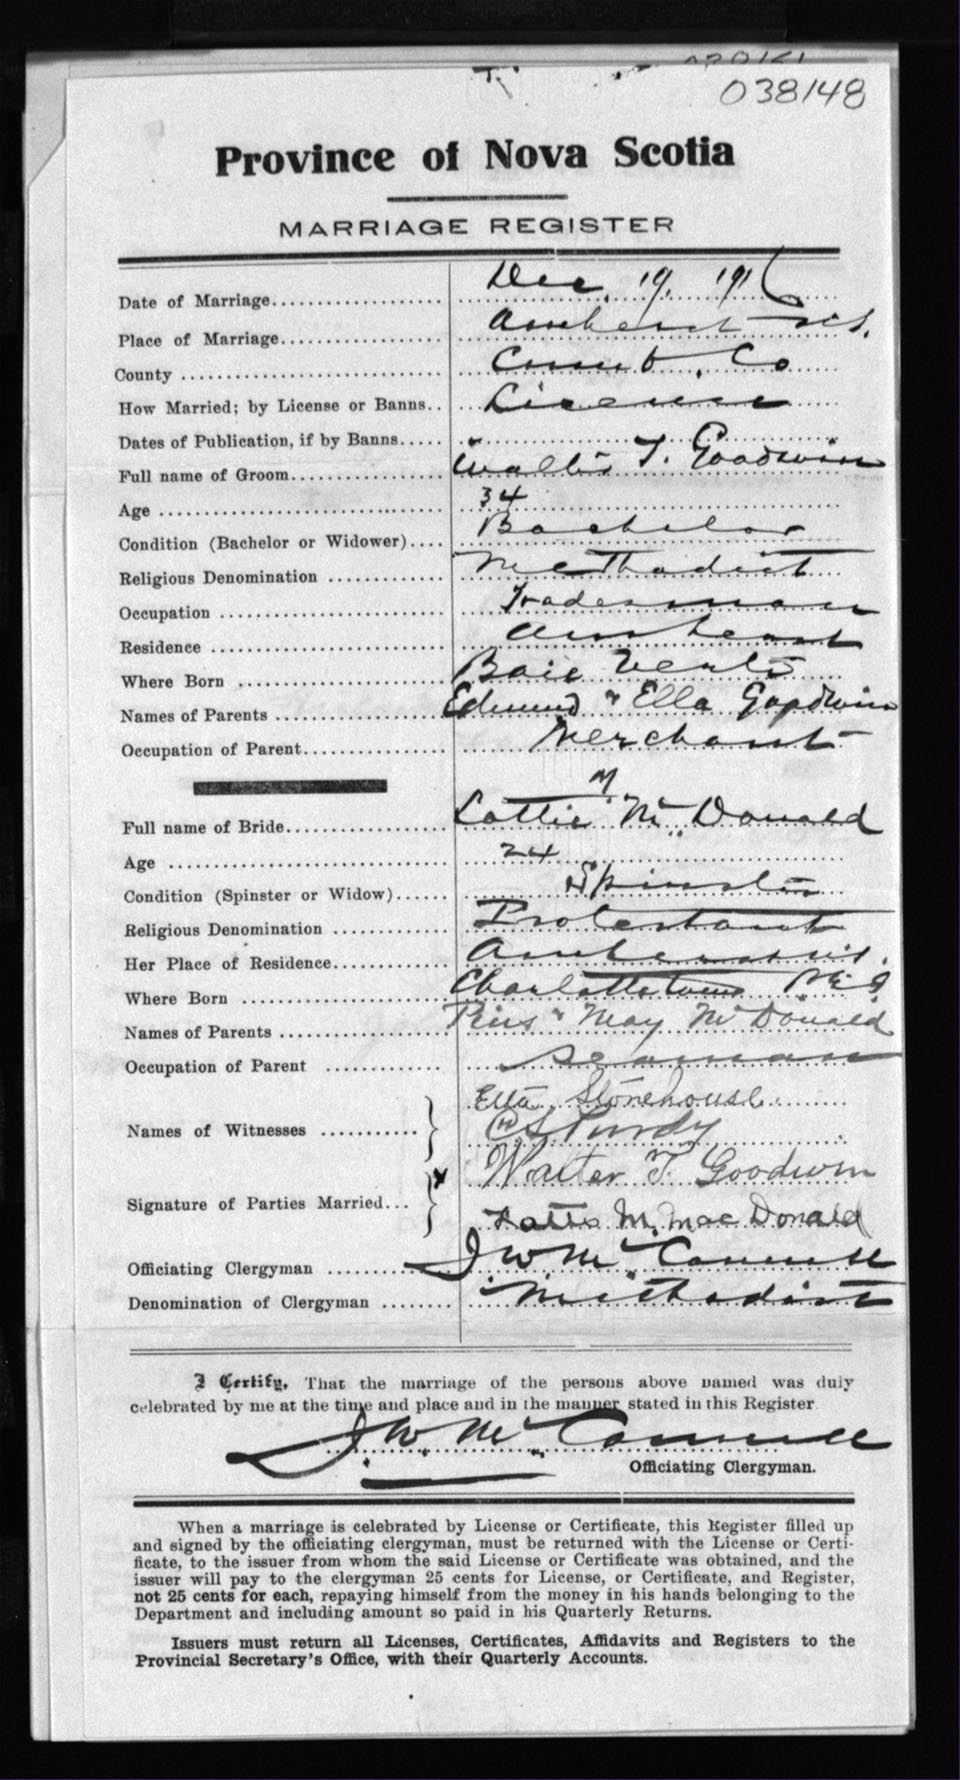 038148
Province of Nova Scotia
MARRIAGE REGISTER
Date of Marriage Dec. 19. 1916
Place of Marriage Amherst N.S.
County Cumb. Co
How Married; by License or Banns License
Dates of Publication, if by Banns
Full name of Groom Walter T. Goodwin
Age 34
Condition (Bachelor or Widower) Bachelor
Religious Denomination Methodist
Occupation Tradesman
Residence Amherst
Where Born Baie Verte
Names of Parents Edmund " Ella Goodwin
Occupation of Parent Merchant
Full name of Bride Lottie M McDonald
Age 24
Condition (Spinster or Widow) Spinster
Religious Denomination Protestant
Her Place of Residence Amherst N.S.
Where Born Charlottetown P.E.I
Names of Parents Pius " May McDonald
Occupation of Parent Seaman
Names of Witnesses Etta Stonehouse
Purdy
Signature of Parties Married Walter T. Goodwin
Lottie M. MacDonald
Officiating Clergyman J W McConnell
Denomination of Clergyman Methodist
I Certify, That the marriage of the persons above named was duly
celebrated by me at the time and place and in the manner stated in this Register
J. W. McConnell
Officiating Clergyman.
When a marriage is celebrated by License or Certificate, this Register filled up
and signed by the officiating clergyman, must be returned with the License or Certi-
ficate, to the issuer from whom the said License or Certificate was obtained, and the
issuer will pay to the clergyman 25 cents for License, or Certificate, and Register,
not 25 cents for each, repaying himself from the money in his hands belonging to the
Department and including amount so paid in his Quarterly Returns.
Issuers must return all Licenses, Certificates, Affidavits and Registers to the
Provincial Secretary's Office, with their Quarterly Accounts.